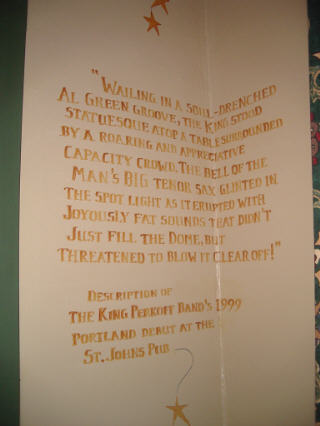 "Wailing in a soul-drenched
Al Green groove, the King stood
statuesque atop a table surrounded
by a roaring and appreciative
capacity crowd. The bell of the
man's BIG tenor sax glinted in
the spot light as it erupted with
joyously fat sounds that didn't
just fill the Dome, but
threatened to blow it clear off!"
Description of
the King Perkoff Band's 1999
Portland debut at the
St. Johns Pub